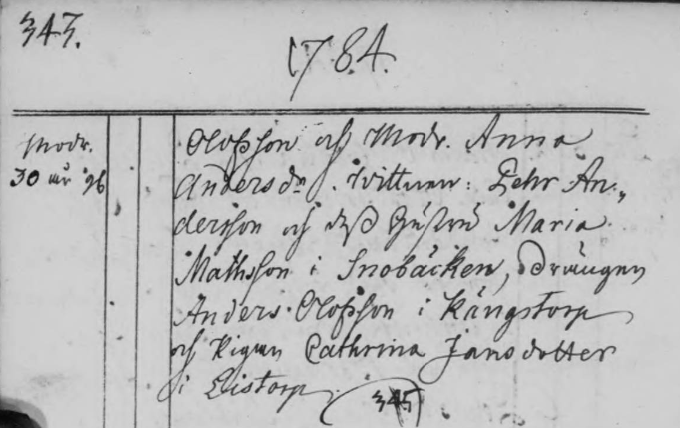 345.
1784.
Modr. 30 åir 96
Olofsson och Modr. Anna
Andersdr. Wittnen: Pehr An„
dersson och dess Hustru Maria
Mathsson i Snobäcken, Drängen
Anders Olofsson i Kängstorp
och Pigan Cathrina Jansdotter
i Listorp
345